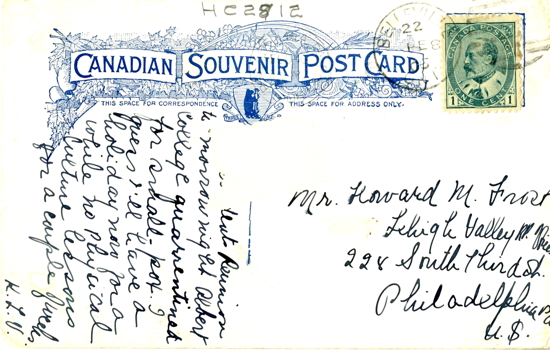 HC2812
CANADIAN SOUVENIR POST CARD
THIS SPACE FOR CORRESPONDENCE
THIS SPACE FOR ADDRESS ONLY.
BELLEVILLE
22
FEB
CANADA POSTAGE
1 ONE CENT 1
Reunion
to-morrow night Albert
College quarrentined
for small-pox. I
guess I'll have a
holiday now for a
while no physical
culture lessons
for a couple weeks
H.L.V.
Mr. Howard M. Frost
Lehigh Valley
228 South Third St.
Philadelphia Pa
U.S.